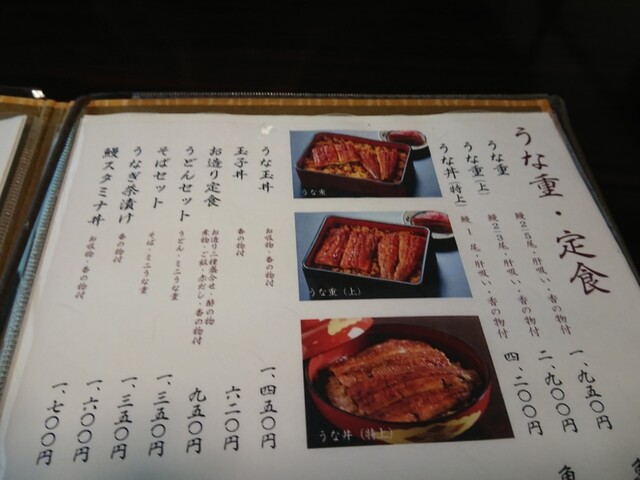 うな重・定食
うな重 鰻2/5尾・肝吸い・香の物付 一、九五〇円
うな重(上) 鰻2/3尾・肝吸い・香の物付 二、九〇〇円
うな丼(特上) 鰻1尾・肝吸い・香の物付 四、二〇〇円
うな重
うな重(上)
うな丼(特上)
うな玉丼 お吸物・香の物付 一、四五〇円
玉子丼 香の物付 六二〇円
お造り定食 お造り二種盛合せ・酢の物
煮物・ご飯・赤だし・香の物付 九五〇円
うどんセット うどん・ミニうな重 一、三五〇円
そばセット そば・ミニうな重 一、三五〇円
うなぎ茶漬け 香の物付 一、六〇〇円
鰻スタミナ丼 お吸物・香の物付 一、七〇〇円